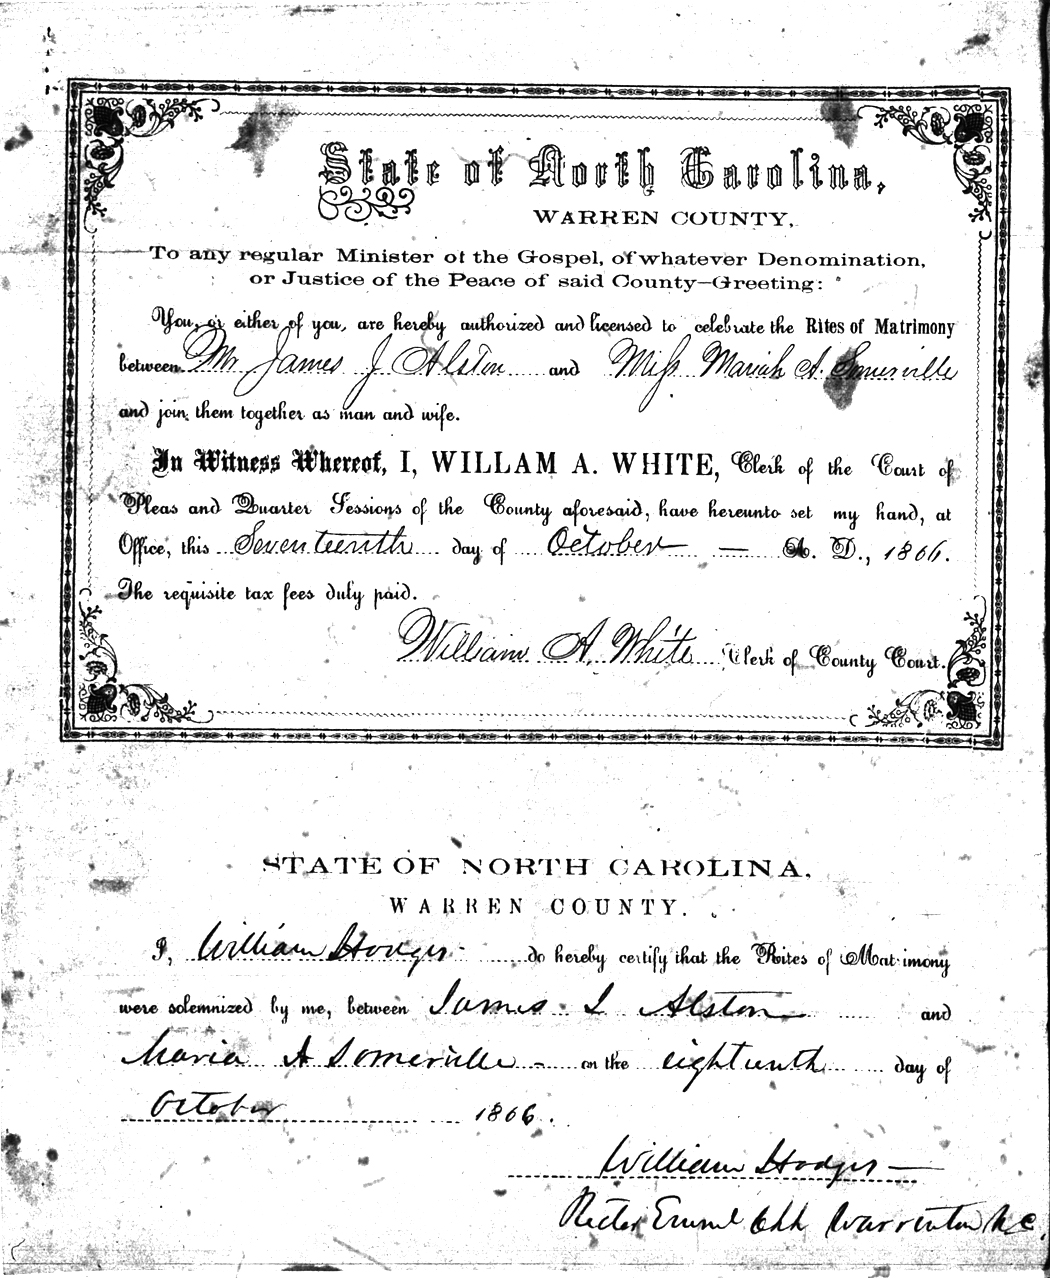 State of North Carolina,
WARREN COUNTY,
To any regular Minister of the Gospel, of whatever Denomination,
or Justice of the Peace of said County—Greeting:
You, or either of you, are hereby authorized and licensed to celebrate the Rites of Matrimony
between Mr James J Alston and Miss Mariah A. Somerville
and join them together as man and wife.
In Witness Whereof, I, WILLAM A. WHITE, Clerk of the Court of
Pleas and Quarter Sessions of the County aforesaid, have hereunto set my hand, at
Office, this Seventeenth day of October — A. D., 1866.
The requisite tax fees duly paid.
William A. White Clerk of County Court.
STATE OF NORTH CAROLINA,
WARREN COUNTY.
I, William Hodges do hereby certify that the Rites of Matrimony
were solemnized by me, between James J Alston and
Maria A Somerville - on the eighteenth day of
October 1866.
William Hodges —
Rector Emml Chh Warrenton N C.